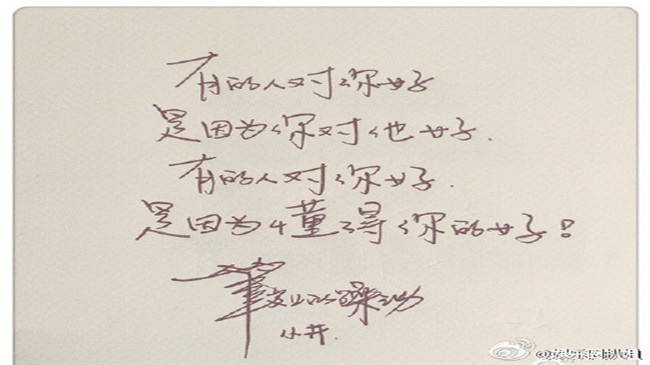 有的人对你好
是因为你对他好.
有的人对你好.
是因为懂得你的好!
笔尖上的躁动
小井.